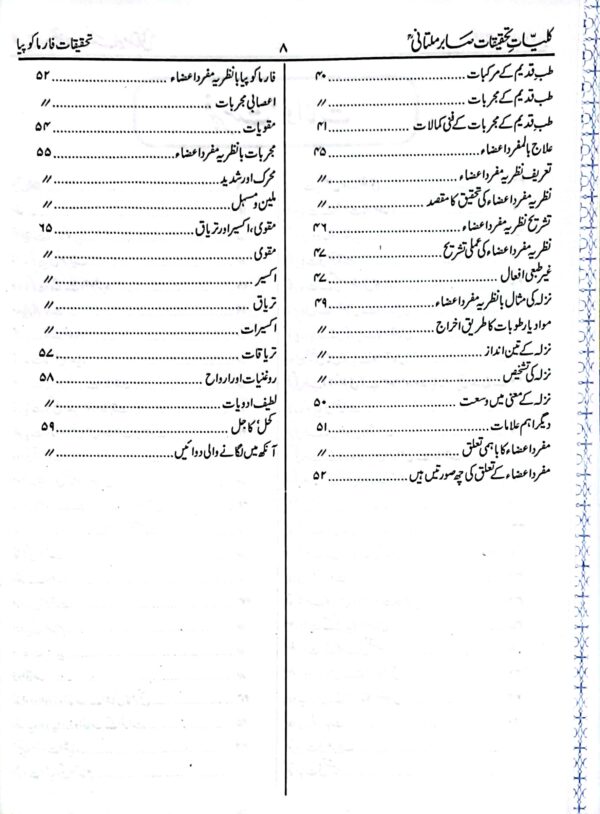 کلیّاتِ تحقیقات صابر ملتانیؒ ۸ تحقیقات فارماکوپیا
طب قدیم کے مرکبات ........ ۴۰
طب قدیم کے مجربات ........ //
طب قدیم کے مجربات کے فنی کمالات ........ ۴۱
علاج بالمفرد اعضاء ........ ۴۵
تعریف نظریہ مفرد اعضاء ........ //
نظریہ مفرد اعضاء کی تحقیق کا مقصد ........ //
تشریح نظریہ مفرد اعضاء ........ ۴۶
نظریہ مفرد اعضاء کی عملی تشریح ........ ۴۷
غیر طبعی افعال ........ ۴۷
نزلہ کی مثال بانظریہ مفرد اعضاء ........ ۴۹
مواد یا رطوبات کا طریق اخراج ........ //
نزلہ کے تین انداز ........ //
نزلہ کی تشخیص ........ //
نزلہ کے معنی میں وسعت ........ ۵۰
دیگر اہم علامات ........ ۵۱
مفرد اعضاء کا باہمی تعلق ........ //
مفرد اعضاء کے تعلق کی چھ صورتیں ہیں ........ ۵۲
فارماکوپیا بانظریہ مفرد اعضاء ........ ۵۲
اعصابی مجربات ........ //
مقویات ........ ۵۴
مجربات بانظریہ مفرد اعضاء ........ ۵۵
محرک اور شدید ........ //
ملین و مسہل ........ //
مقوی، اکسیر اور تریاق ........ ۶۵
مقوی ........ //
اکسیر ........ //
تریاق ........ //
اکسیرات ........ //
تریاقات ........ ۵۷
روغنیات اور ارواح ........ ۵۸
لطیف ادویات ........ //
کحل‘ کاجل ........ ۵۹
آنکھ میں لگانے والی دوائیں ........ //